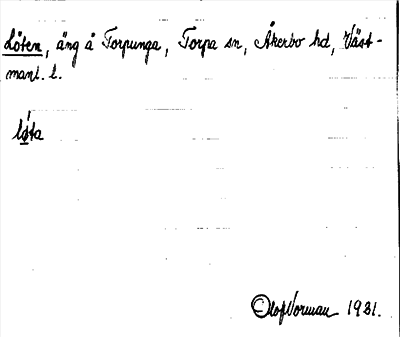 Löten, äng å Torpunga, Torpa sn, Åkerbo hd, Väst-
manl. l.
lo̱ta
Olof Norman 1931.